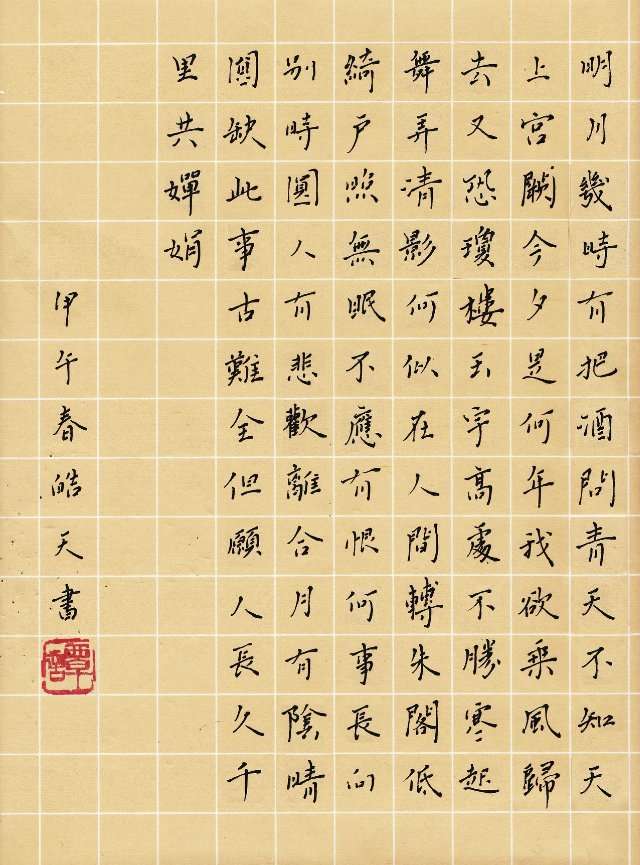 明月幾時有把酒問青天不知天
上宮闕今夕是何年我欲乘風歸
去又恐瓊樓玉宇高處不勝寒起
舞弄清影何似在人間轉朱閣低
綺戶照無眠不應有恨何事長向
別時圓人有悲歡離合月有陰晴
圓缺此事古難全但願人長久千
里共嬋娟
甲午春皓天書
譚